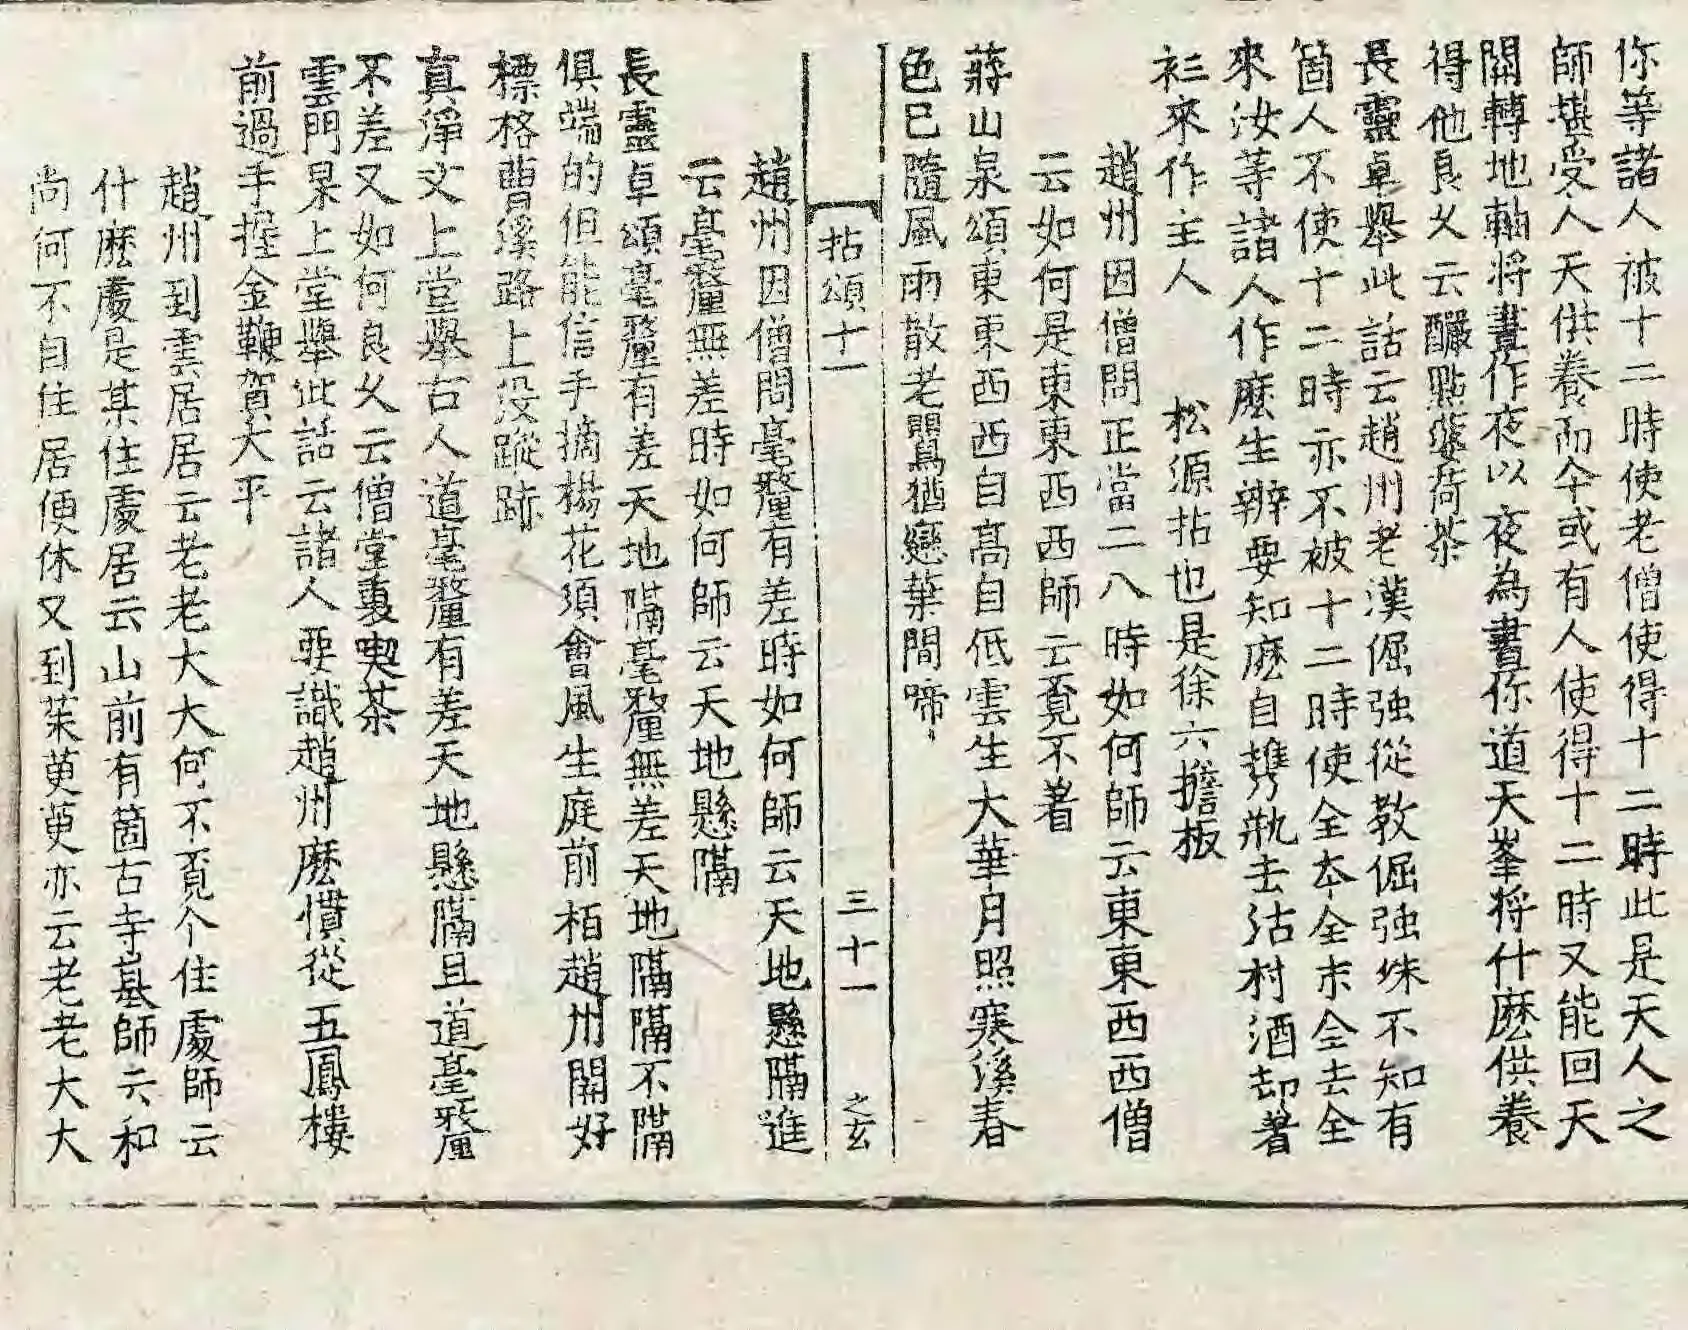 你等諸人被十二時使老僧使得十二時此是天人之
師堪受人天供養而今或有人使得十二時又能回天
關轉地軸將晝作夜以夜為晝你道天峯將什麽供養
得他良久云釅點茶
長靈卓舉此話云趙州老漢倔強從教倔強殊不知有
箇人不使十二時亦不被十二時使全本全末全去全
來汝等諸人作麽生辨要知麽自携缾去沽村酒却著
衫來作主人 松源拈也是徐六擔板
趙州因僧問正當二八時如何師云東東西西僧
云如何是東東西西師云覔不著
蔣山泉頌東東西西自高自低雲生大華月照寒溪春
色已隨風雨散老鸎猶戀葉間啼
拈頌十一 三十一 之玄
趙州因僧問毫釐有差時如何師云天地懸隔進
云毫釐無差時如何師云天地懸隔
長靈卓頌毫釐有差天地隔毫釐無差天地隔隔不隔
俱端的但能信手摘楊花須會風生庭前栢趙州開好
標格曹溪路上没蹤跡
真淨文上堂舉古人道毫釐有差天地懸隔且道毫釐
不差又如何良久云僧堂裏喫茶
雲門杲上堂舉此話云諸人要識趙州麽慣從五鳳樓
前過手握金鞭賀大平
趙州到雲居居云老老大大何不覔个住處師云
什麽處是某住處居云山前有箇古寺基師云和
尚何不自住居便休又到茱萸萸亦云老老大大